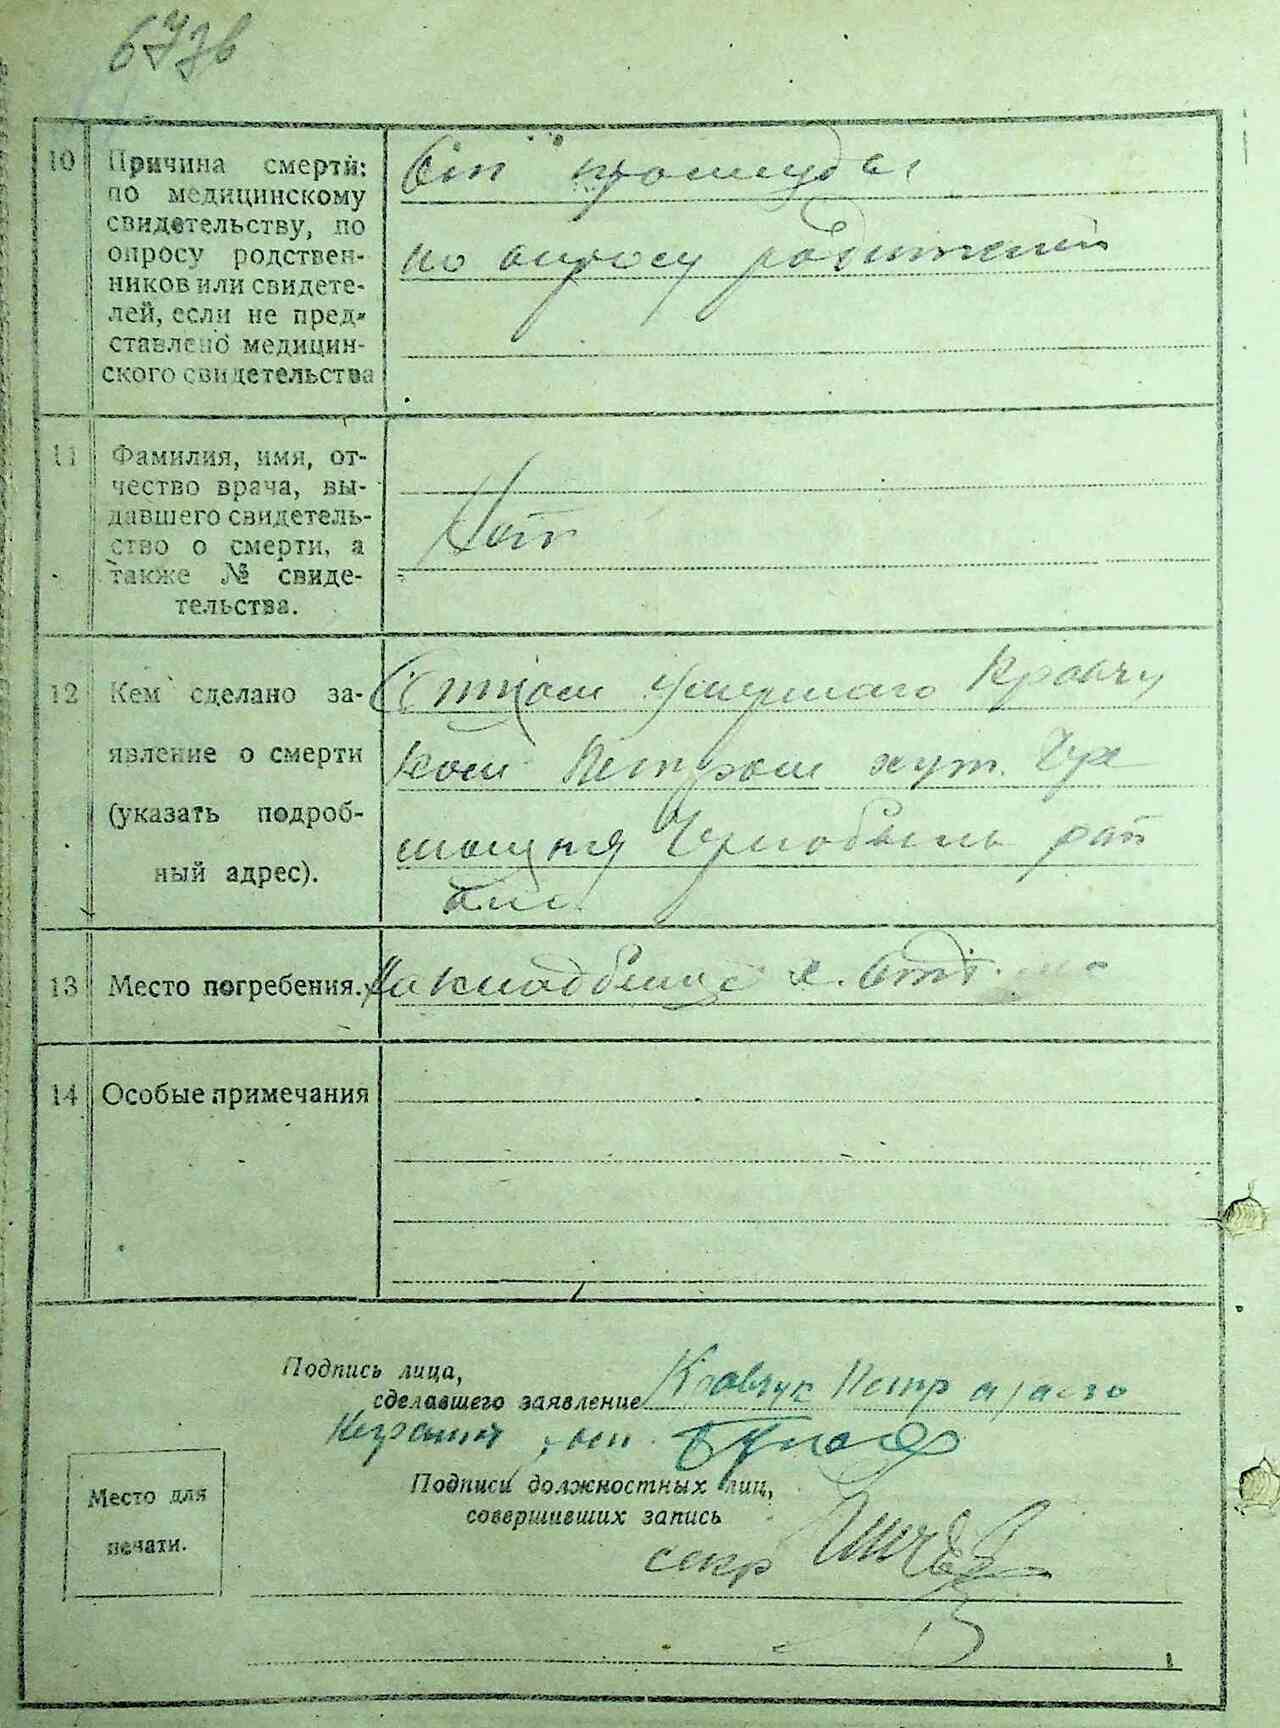 10 Причина смерти:
по медицинскому
свидетельству, по
опросу родствен-
ников или свидете-
лей, если не пред-
ставлено медицин-
ского свидетельства
От простуды
по опросу родителей
11 Фамилия, имя, от-
чество врача, вы-
давшего свидетель-
ство о смерти, а
также № свиде-
тельства.
Нет
12 Кем сделано за-
явление о смерти
(указать подроб-
ный адрес).
Отцом умершаго Кравчу
ком Петром хут.
рай
13 Место погребения.
На кладбище х.
14 Особые примечания
Подпись лица,
сделавшего заявление Кравчук Петр
Подписи должностных лиц,
совершивших запись
секр
Место для
печати.